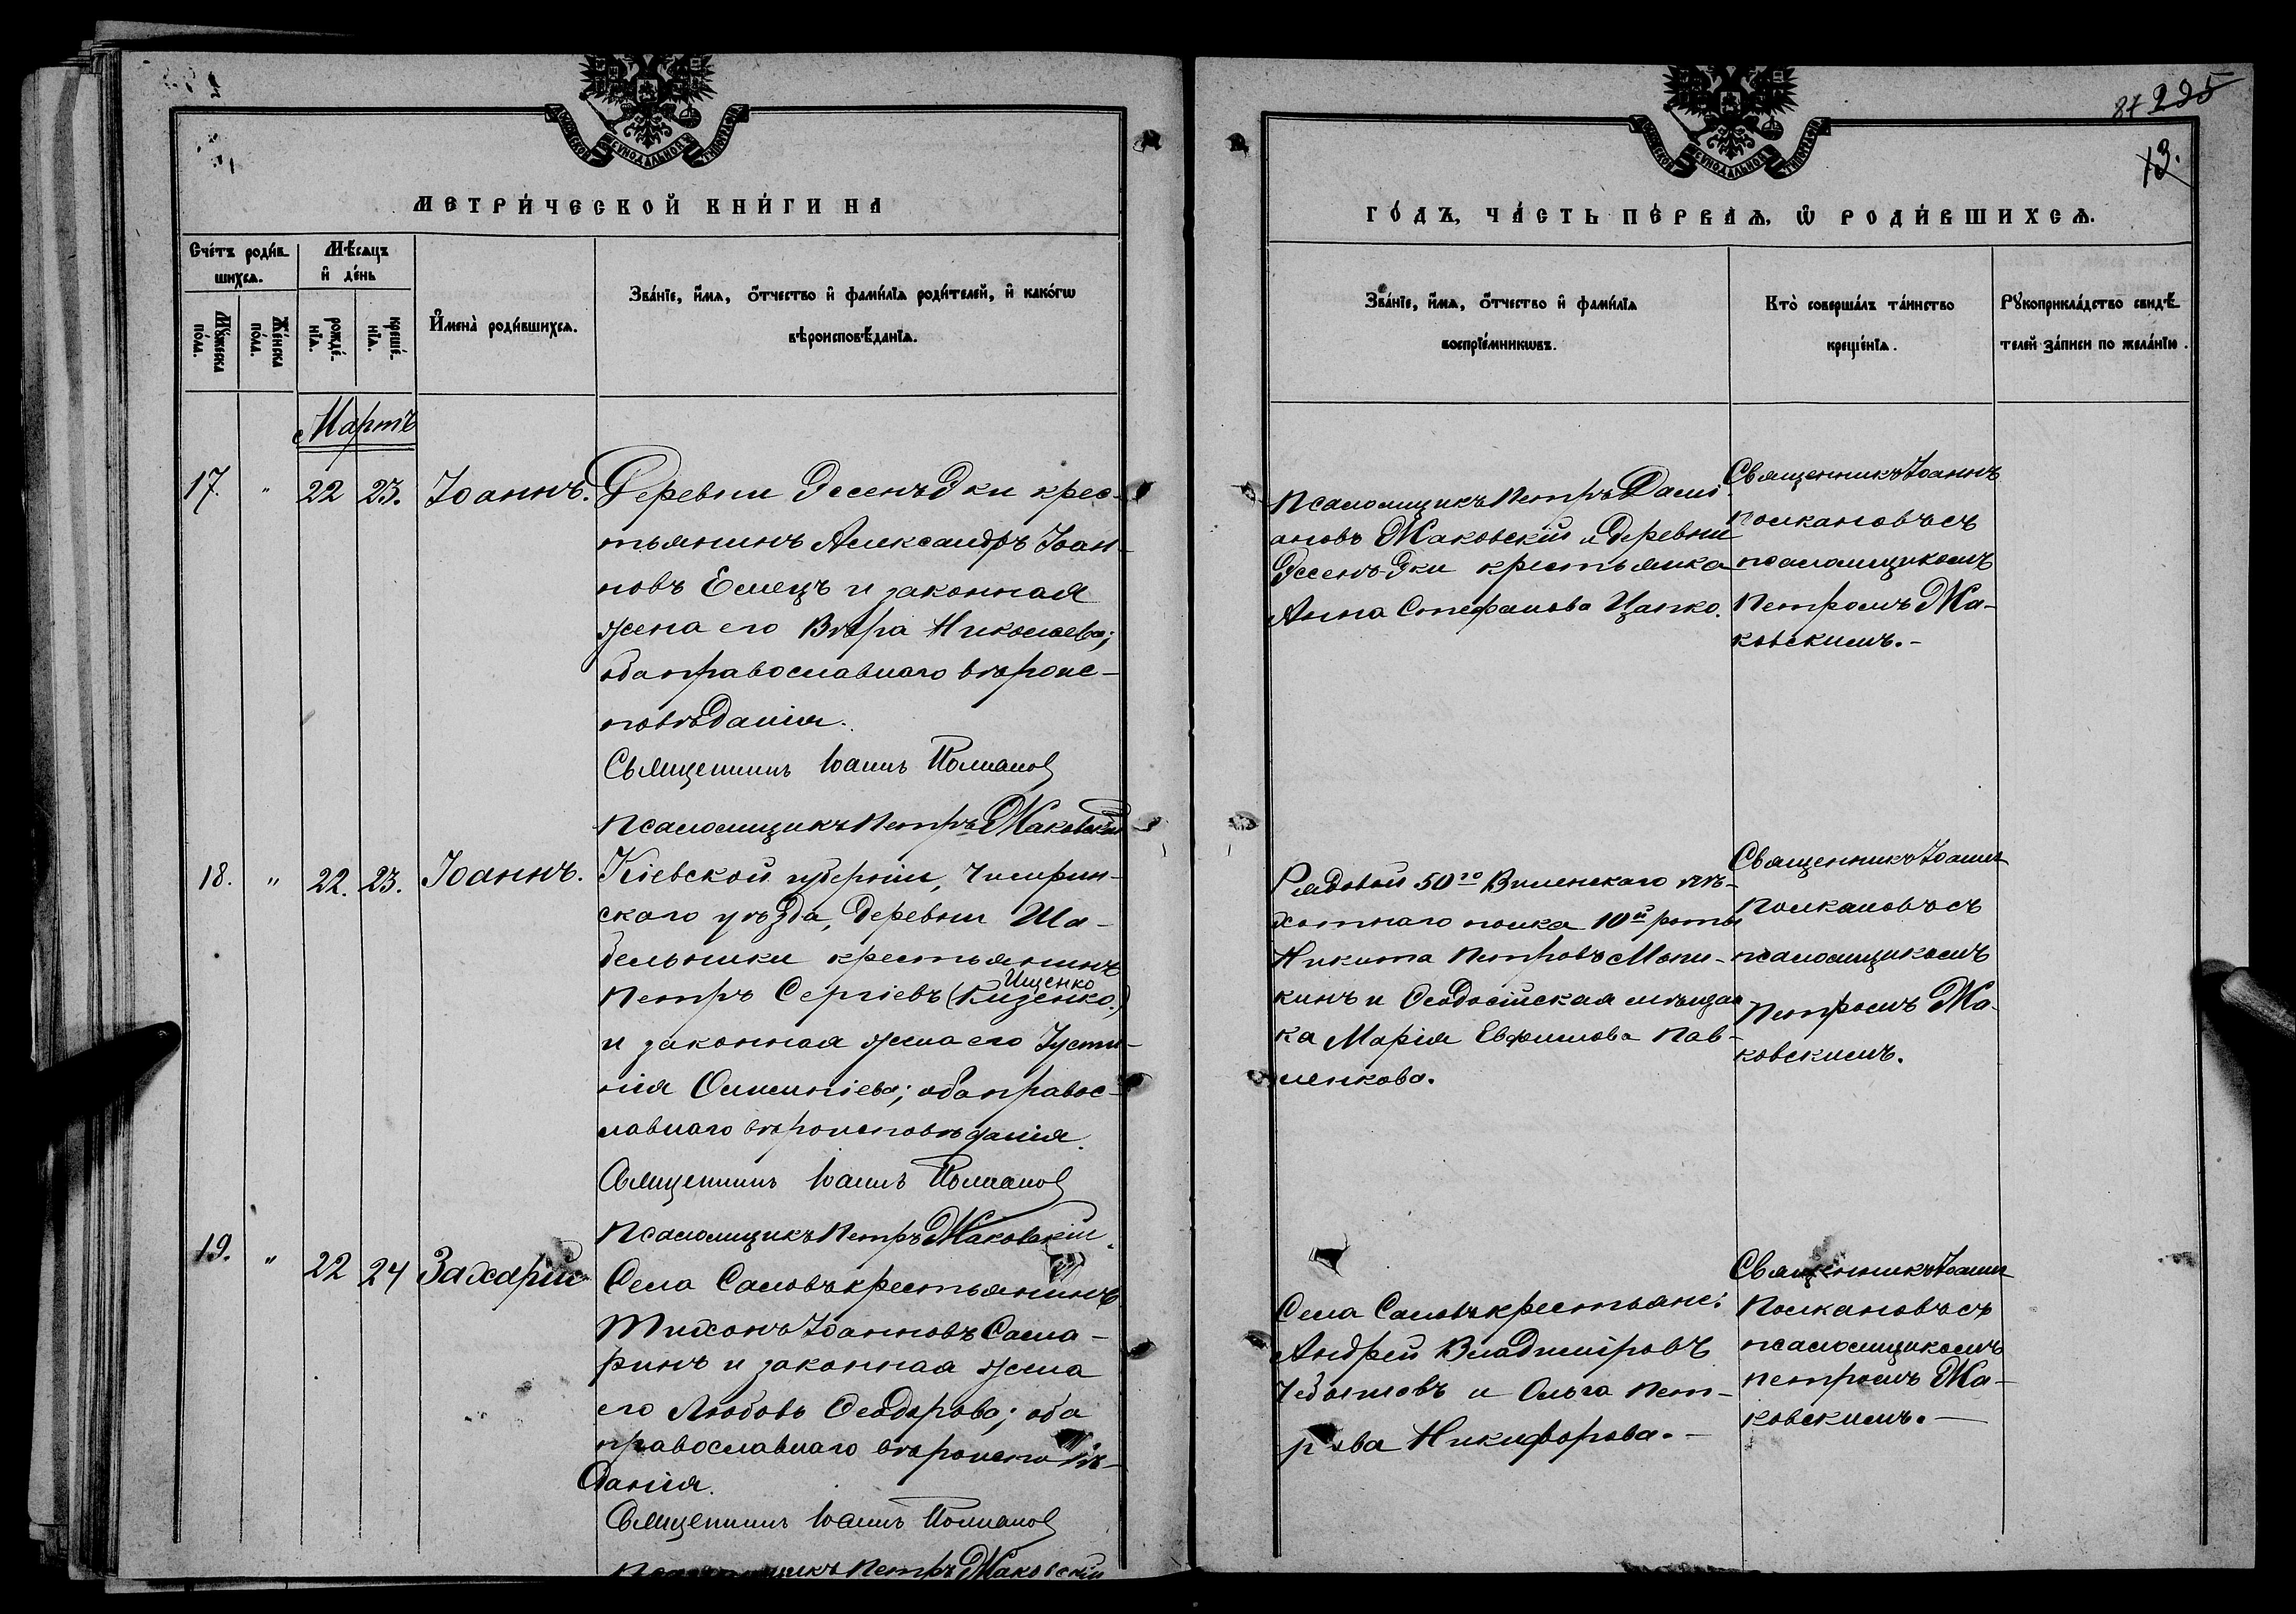 МЕТРИ́ЧЕСКОЙ КНИ́ГИ НА
Сче́тъ роди́в-
шихсѧ.
Мѣ́сѧцъ
и҆ де́нь
Мꙋ́жеска
по́ла.
Же́нска
по́ла.
рожде́-
нїѧ.
креще́-
нїѧ.
И҆мена̀ роди́вшихсѧ.
Зва́нїе, и҆́мѧ, ѻ҆́тчество и҆ фами́лїѧ роди́телей, и҆ како́гѡ
вѣроисповѣ́данїѧ.
Мартъ
17. " 22 23. Іоаннъ.
Деревни крес-
тьянинъ Александръ Іоан-
новъ Емецъ и законная
жена его Вѣра Николаева;
оба православнаго вѣроис-
повѣданія.
Священникъ Іоаннъ Полкановъ
Псаломщикъ Петръ Маковскій
18. " 22. 23. Іоаннъ.
Кіевской губерніи, Чигирин-
скаго уѣзда, деревни Ша-
бельники крестьянинъ
Ищенко
Петръ Сергіевъ (Кизенко.)
и законная жена его Іусти-
нія; оба правос-
лавнаго вѣроисповѣданія.
Священникъ Іоаннъ Полкановъ
Псаломщикъ Петръ Маковскій.
19. " 22 24 Захарій
Села Саловъ крестьянинъ
Тихонъ Іоанновъ Сама-
ринъ и законная жена
его Любовь Ѳеодорова; оба
православнаго вѣроисповѣ-
данія.
Священникъ Іоаннъ Полкановъ
Псаломщикъ Петръ Маковскій
87 225
13.
ГО́ДЪ, ЧА́СТЬ ПЕ́РВАѦ, Ѡ҆ РОДИ́ВШИХСѦ.
Зва́нїе, и҆́мѧ, ѻ҆́тчество и҆ фами́лїѧ
воспрїе́мникѡвъ.
Кто̀ соверша́лъ та́инство
креще́нїѧ.
Рꙋкоприкла́дство свидѣ́-
телей за́писи по жела́нїю.
Псаломщикъ Петръ Дамі-
ановъ Маковскій и деревни
крестьянка
Анна Стефанова Цапко.
Священникъ Іоаннъ
Полкановъ съ
псаломщикомъ
Петромъ Ма-
ковскимъ.-
Рядовой 50го Виленскаго пѣ-
хотнаго полка 10й роты
Никита Петровъ Мони-
кинъ и Ѳеодосійская мѣщан-
ка Марія Евфимова Пав-
ленкова.
Священникъ Іоаннъ
Полкановъ съ
псаломщикомъ
Петромъ Ма-
ковскимъ.
Села Саловъ крестьяне:
Андрей Владиміровъ
Чеботовъ и Ольга Пет-
рова Никифорова.-
Священникъ Іоаннъ
Полкановъ съ
псаломщикомъ
Петромъ Ма-
ковскимъ.-